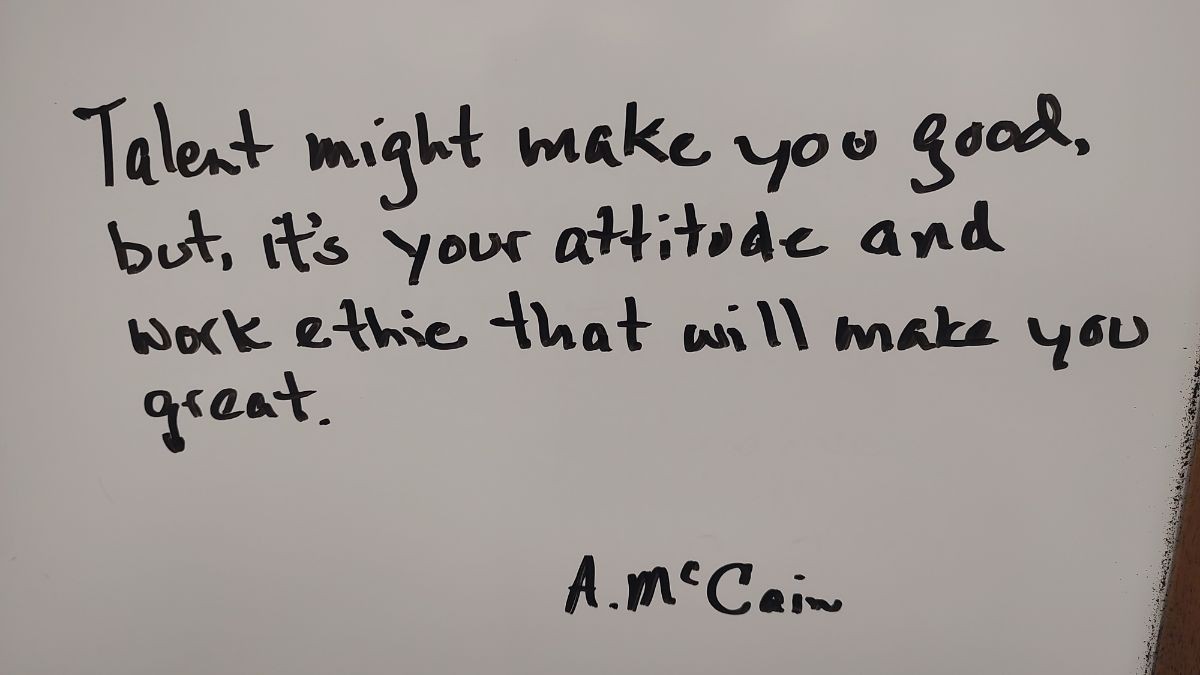 Talent might make you good,
but, it's your attitude and
work ethic that will make you
great.
A. McCain